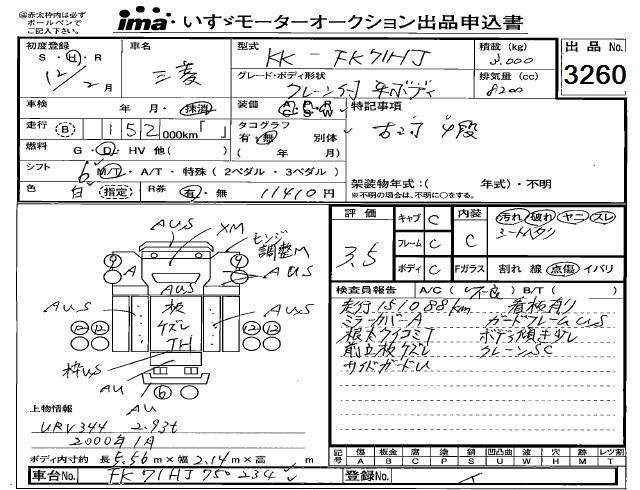 赤太枠内は必ず
ボールペンで
ご記入下さい。
ima いすゞモーターオークション出品申込書
初度登録 S・H・R 12年 2月
車名 三菱
型式 KK-FK71HJ
積載(kg) 3,000
出品No. 3260
グレード・ボディ形状 クレーン付 平ボディ
排気量(cc) 8200
車検 年 月・抹消
装備 A C・P S・R W
特記事項
古河 4段
走行 B 152 000km「 」
タコグラフ 有・無 別体
( 年 月)
燃料 G・D・HV 他( )
シフト 6 M/T・A/T・特殊(2ペダル・3ペダル)
架装物年式:( 年式)・不明
※不明の場合は、不明に○をする。
色 白 指定 R券 有・無 11410円
評価 3.5
キャブ C
フレーム C
ボディ C
内装 C
汚れ 破れ ヤニ スレ
シートヘタリ
Fガラス 割れ 線 点傷 イバリ
AUS
XM
センジ
調整M
AUS
A
AUS
AUS
板
ケズレ
TH
枠US
AU
AU
9
9
12 12
12 12
6
検査員報告 A/C(不良) B/T( )
走行151088km 看板有り
ミラーカバーA ガードフレームUS
根太クイコミT ボデー傾き少し
前立板ケズレ クレーンSC
サイドガードU
上物情報
URV344 2.93t
2000年1月
ボディ内寸約 長5.56m×幅2.14m×高 m
記号 傷A 板金B 腐C 塗P 錆S 凹凸曲U 波W 穴H 跡M レツ割T
車台No. FK71HJ750234
登録No.